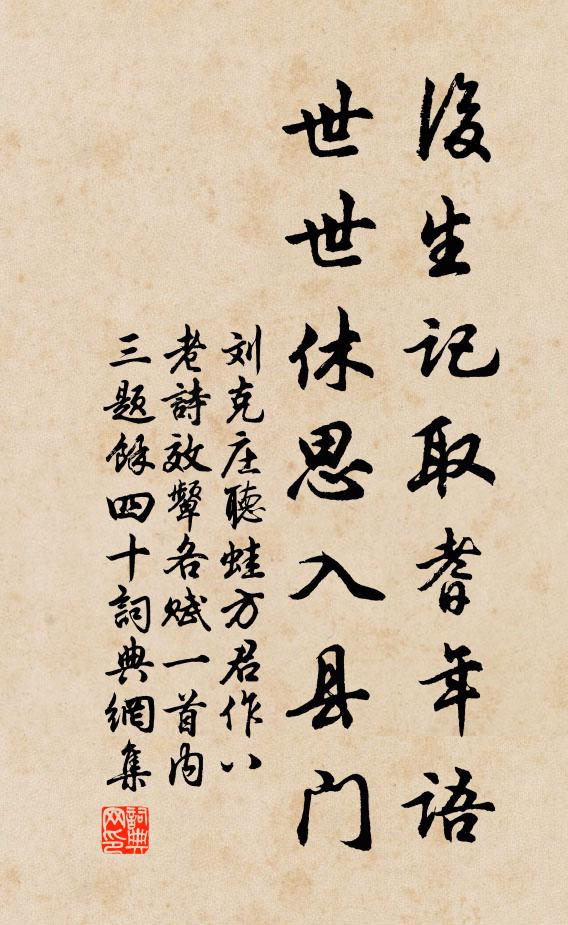 後生记取耆年语
世世休思入县门
刘克庄聽蛙方君作八
老詩效颦各赋一首内
三題餘四十詞典網集
詞典网印